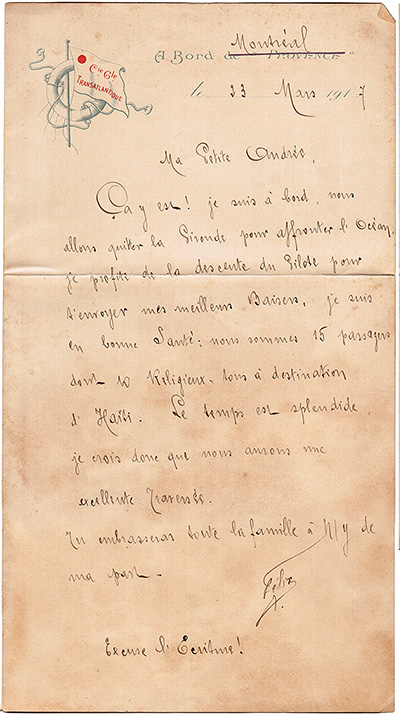 Cie Gle
TRANSATLANTIQUE
A BORD de "PROVENCE"
Montréal
le 23 Mars 1917
Ma Petite Andrée,
Ça y est! je suis à bord, nous
allons quiter la Gironde pour affronter l'Océan,
je profite de la descente du Pilote pour
t'envoyer mes meilleurs Baisers, je suis
en bonne Santé; nous sommes 15 passagers
dont 10 Religieux, tous à destination
d'Haïti. Le temps est splendide,
je crois donc que nous aurons une
excellente Traversée.
Tu embrasseras toute la famille à N/y de
ma part.
Félix
Excuse l'Ecriture!